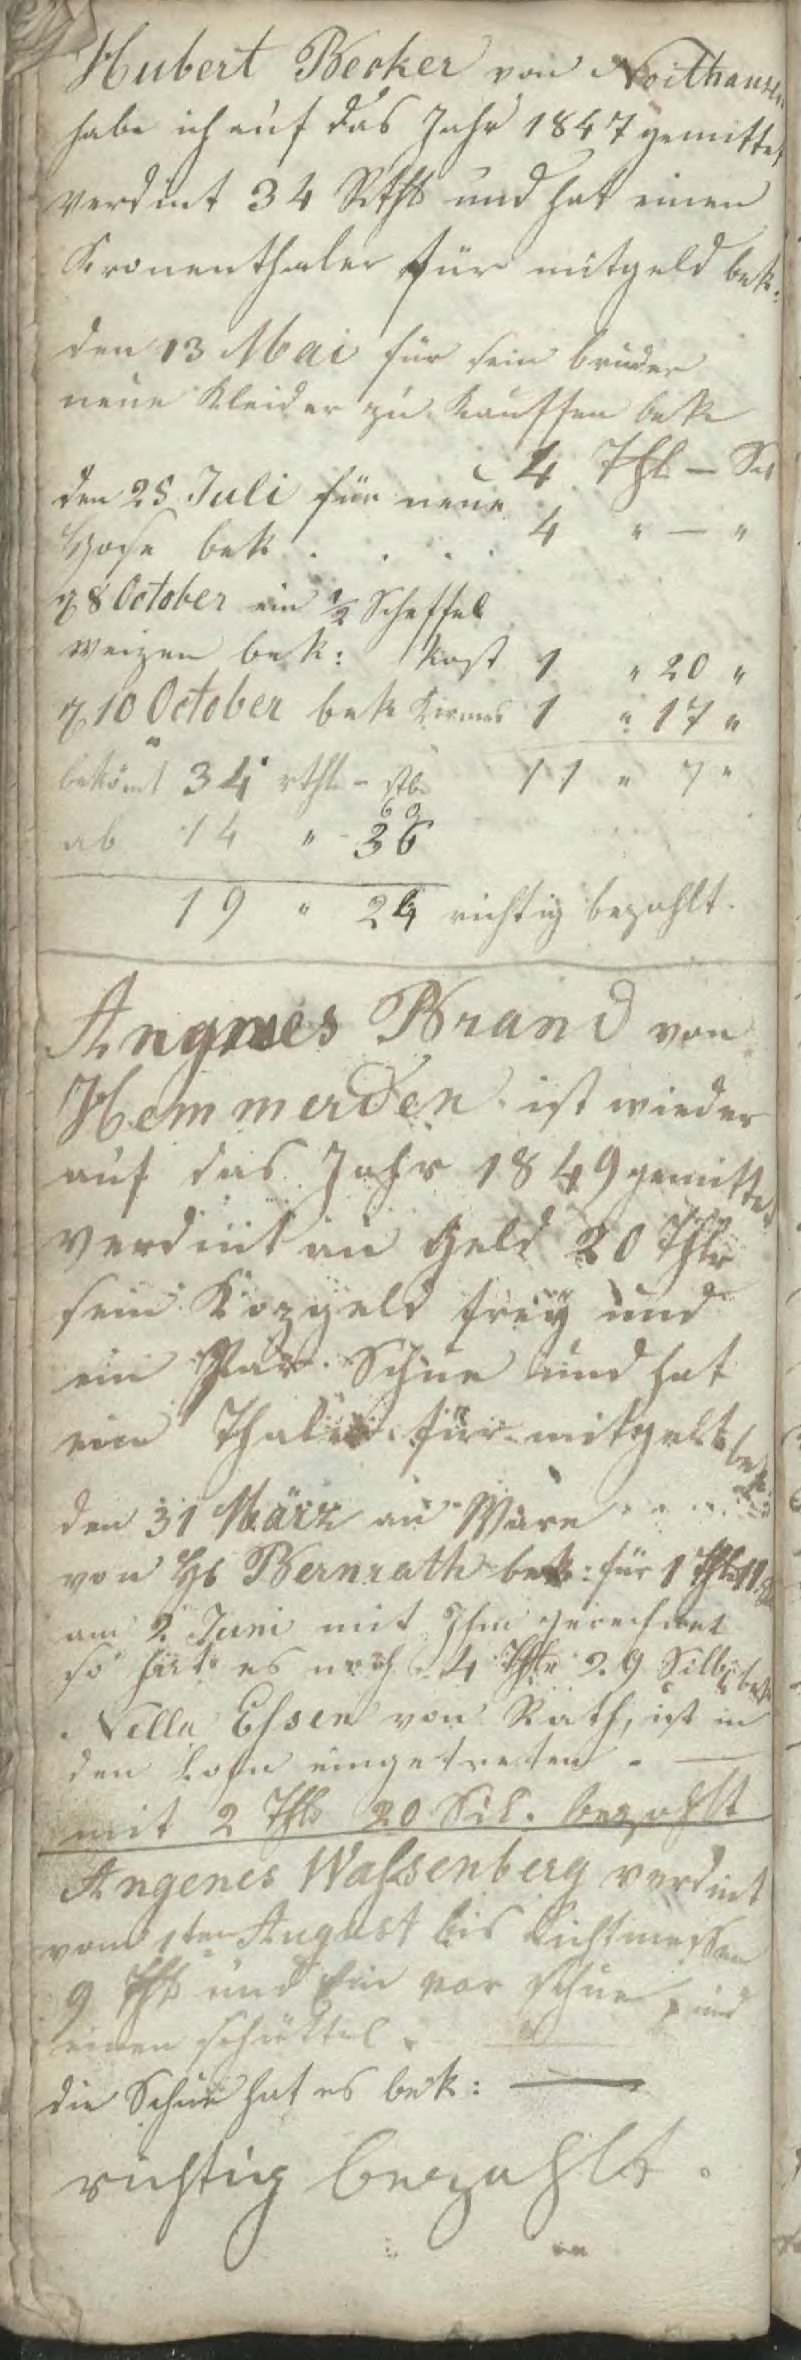 Hubert Becker von Noithausen
habe ich auf das Jahr 1847 gemittet
verdint 34 Rthl und hat einen
Kronenthaler für mitgeld bek:
den 13 Mai für sein bruder
neue Kleider zu Kauffen bek
4 Thl — Sil
den 25 Juli für neue
Hose bek . . . 4 " — "
8 October ein ½ Scheffel
Weizen bek: kost 1 " 20 "
10 October bek Kirmes 1 " 17 "
bekömt 34 rthl - stbr 11 " 7 "
60
ab 14 " 36
19 " 24 richtig bezahlt.
Angnes Brand von
Hemmerden ist wieder
auf das Jahr 1849 gemittet
verdint an Geld 20 Thlr
sein Kozgeld frey und
ein Par Schue und hat
ein Thaler für mitgelt bek
den 31 März an Ware . . . .
von Hs Bernrath bek: für 1 Thlr 11
am 2 Juni mit Ihm gerechnet
so hat es noch 4 Thlr 29 Silb bek
Nella Essen von Rath, ist in
den Lohn eingetreten . —
mit 2 Thlr 20 Sil. bezahlt
Angenes Wassenberg verdint
vom 1ten August bis Lichtmessen
9 Thl und Ein par schue, und
einen schüttel . —
die Schue hat es bek: —
richtig bezahlt.